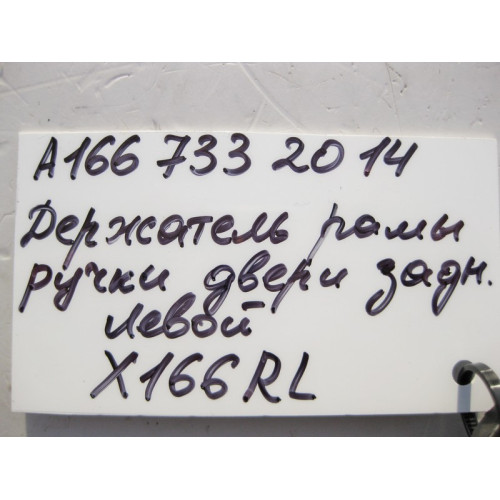 A166 733 20 14
Держатель рамы
ручки двери задн.
левой
X166 RL